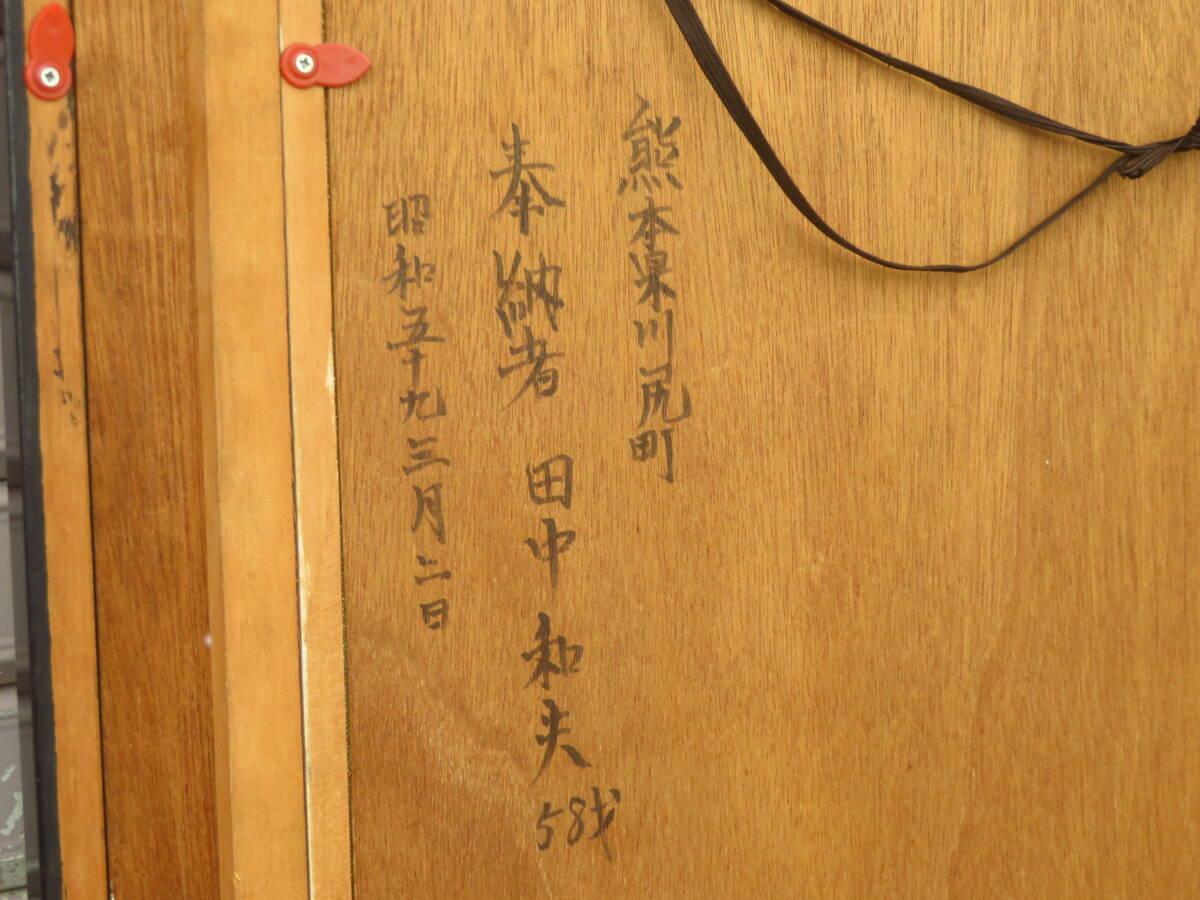 熊本県川尻町
奉納者 田中和夫 58才
昭和五十九三月二日